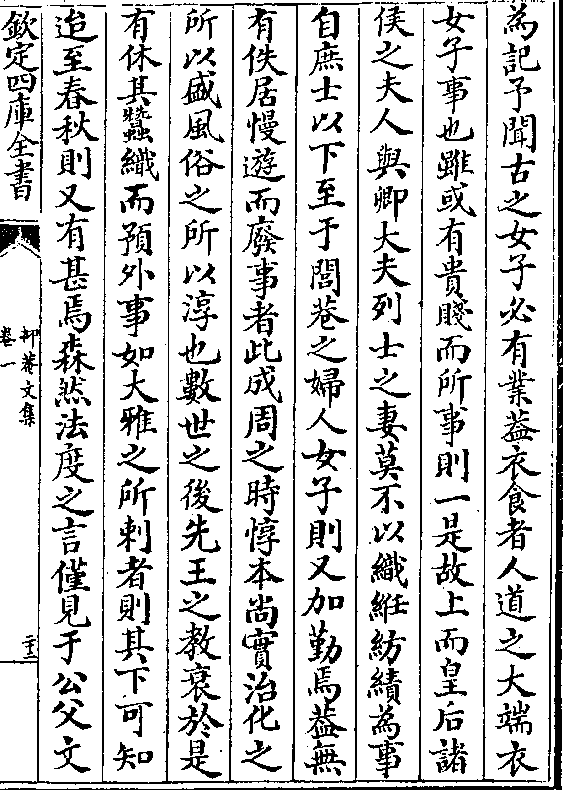 為記予聞古之女子必有業葢衣食者人道之大端衣
女子事也雖或有貴賤而所事則一是故上而皇后諸
侯之夫人與卿大夫列士之妻莫不以織絍紡績為事
自庶士以下至于閭巷之婦人女子則又加勤焉葢無
有佚居慢遊而廢事者此成周之時惇本尚實治化之
所以盛風俗之所以淳也數世之後先王之教衰於是
有休其蠶織而預外事如大雅之所刺者則其下可知
迨至春秋則又有甚焉森然法度之言僅見于公父文
欽定四庫全書
抑菴文集
卷一
二十三